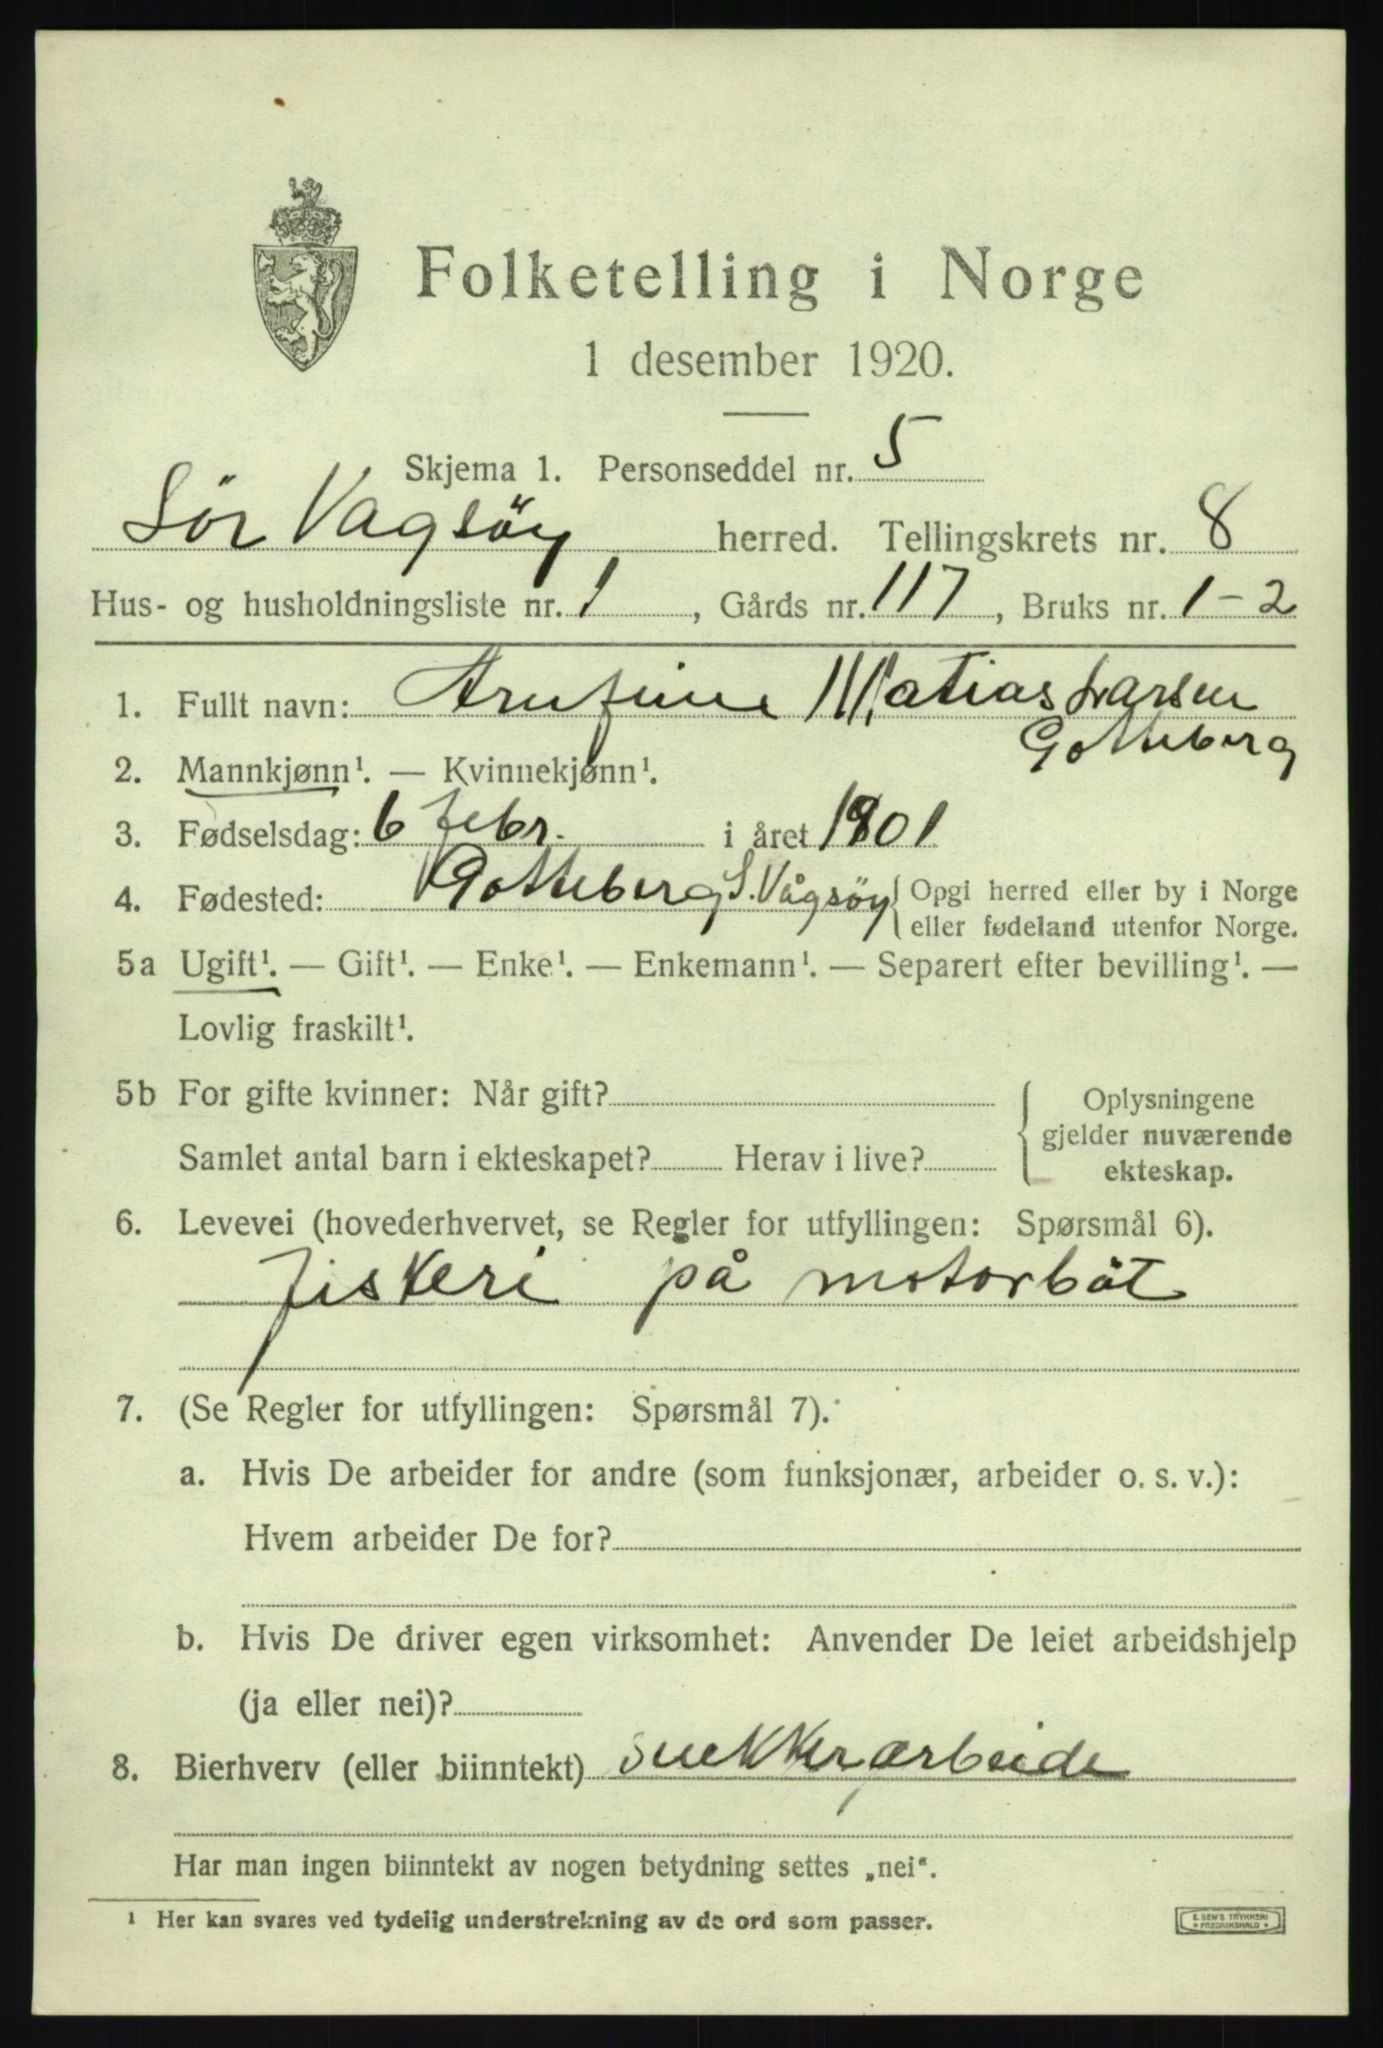 Folketelling i Norge
1 desember 1920.
Skjema 1. Personseddel nr. 5
Sör Vagsöy herred. Tellingskrets nr. 8
Hus- og husholdningsliste nr. 1, Gårds nr. 117, Bruks nr. 1-2
1. Fullt navn: Matias Larsen
Gotteberg
2. Mannkjønn¹. — Kvinnekjønn¹.
3. Fødselsdag: 6 febr. i året 1901
4. Fødested: Gotteberg S. Vågsöy { Opgi herred eller by i Norge
eller fødeland utenfor Norge.
5a Ugift¹. — Gift¹. — Enke¹. — Enkemann¹. — Separert efter bevilling¹. —
Lovlig fraskilt¹.
5b For gifte kvinner: Når gift?
Samlet antal barn i ekteskapet? Herav i live?
Oplysningene
gjelder nuværende
ekteskap.
6. Levevei (hovederhvervet, se Regler for utfyllingen: Spørsmål 6).
fiskeri på motorbåt
7. (Se Regler for utfyllingen: Spørsmål 7).
a. Hvis De arbeider for andre (som funksjonær, arbeider o. s. v.):
Hvem arbeider De for?
b. Hvis De driver egen virksomhet: Anvender De leiet arbeidshjelp
(ja eller nei)?
8. Bierhverv (eller biinntekt) snekkerarbeide
Har man ingen biinntekt av nogen betydning settes „nei“.
¹ Her kan svares ved tydelig understrekning av de ord som passer.
E. SEM'S TRYKKERI
FREDRIKSHALD